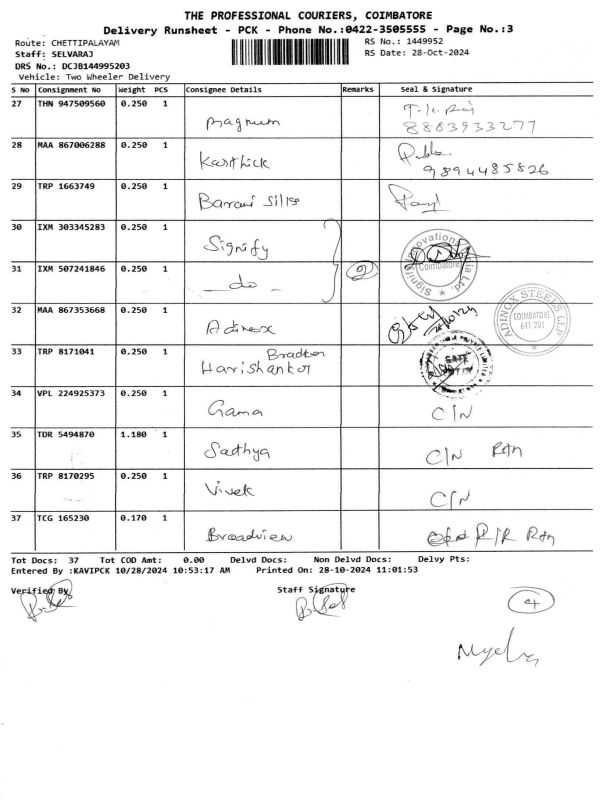 THE PROFESSIONAL COURIERS, COIMBATORE
Delivery Runsheet - PCK - Phone No.:0422-3505555 - Page No.:3
Route: CHETTIPALAYAM RS No.: 1449952
Staff: SELVARAJ RS Date: 28-Oct-2024
DRS No.: DCJB144995203
Vehicle: Two Wheeler Delivery
S No Consignment No Weight PCS Consignee Details Remarks Seal & Signature
27 THN 947509560 0.250 1 Magnum 8863933277
28 MAA 867006288 0.250 1 Karthick 9894485826
29 TRP 1663749 0.250 1 Barani Silks
30 IXM 303345283 0.250 1 Signify
31 IXM 507241846 0.250 1 -do- 2 Coimbatore
32 MAA 867353668 0.250 1 Adinox ADINOX STEELS LLP COIMBATORE 641 201
33 TRP 8171041 0.250 1 Harishankar GATE
34 VPL 224925373 0.250 1 Gama C/N
35 TDR 5494870 1.180 1 Sadhya C/N Rtn
36 TRP 8170295 0.250 1 Vivek C/N
37 TCG 165230 0.170 1 Broadview Rtn
Tot Docs: 37 Tot COD Amt: 0.00 Delvd Docs: Non Delvd Docs: Delvy Pts:
Entered By :KAVIPCK 10/28/2024 10:53:17 AM Printed On: 28-10-2024 11:01:53
Verified By Staff Signature
4